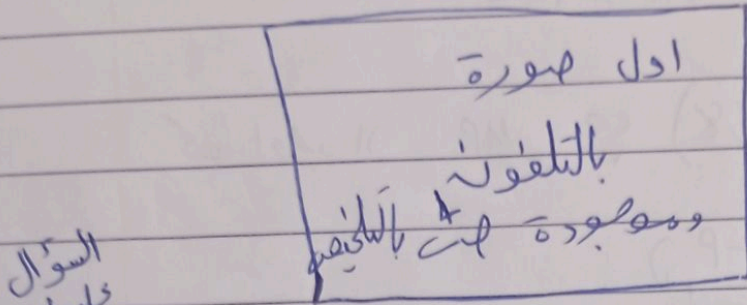 اول صورة
بالتلفون
وموجودة صـ 8 بالتلخيص
السؤال